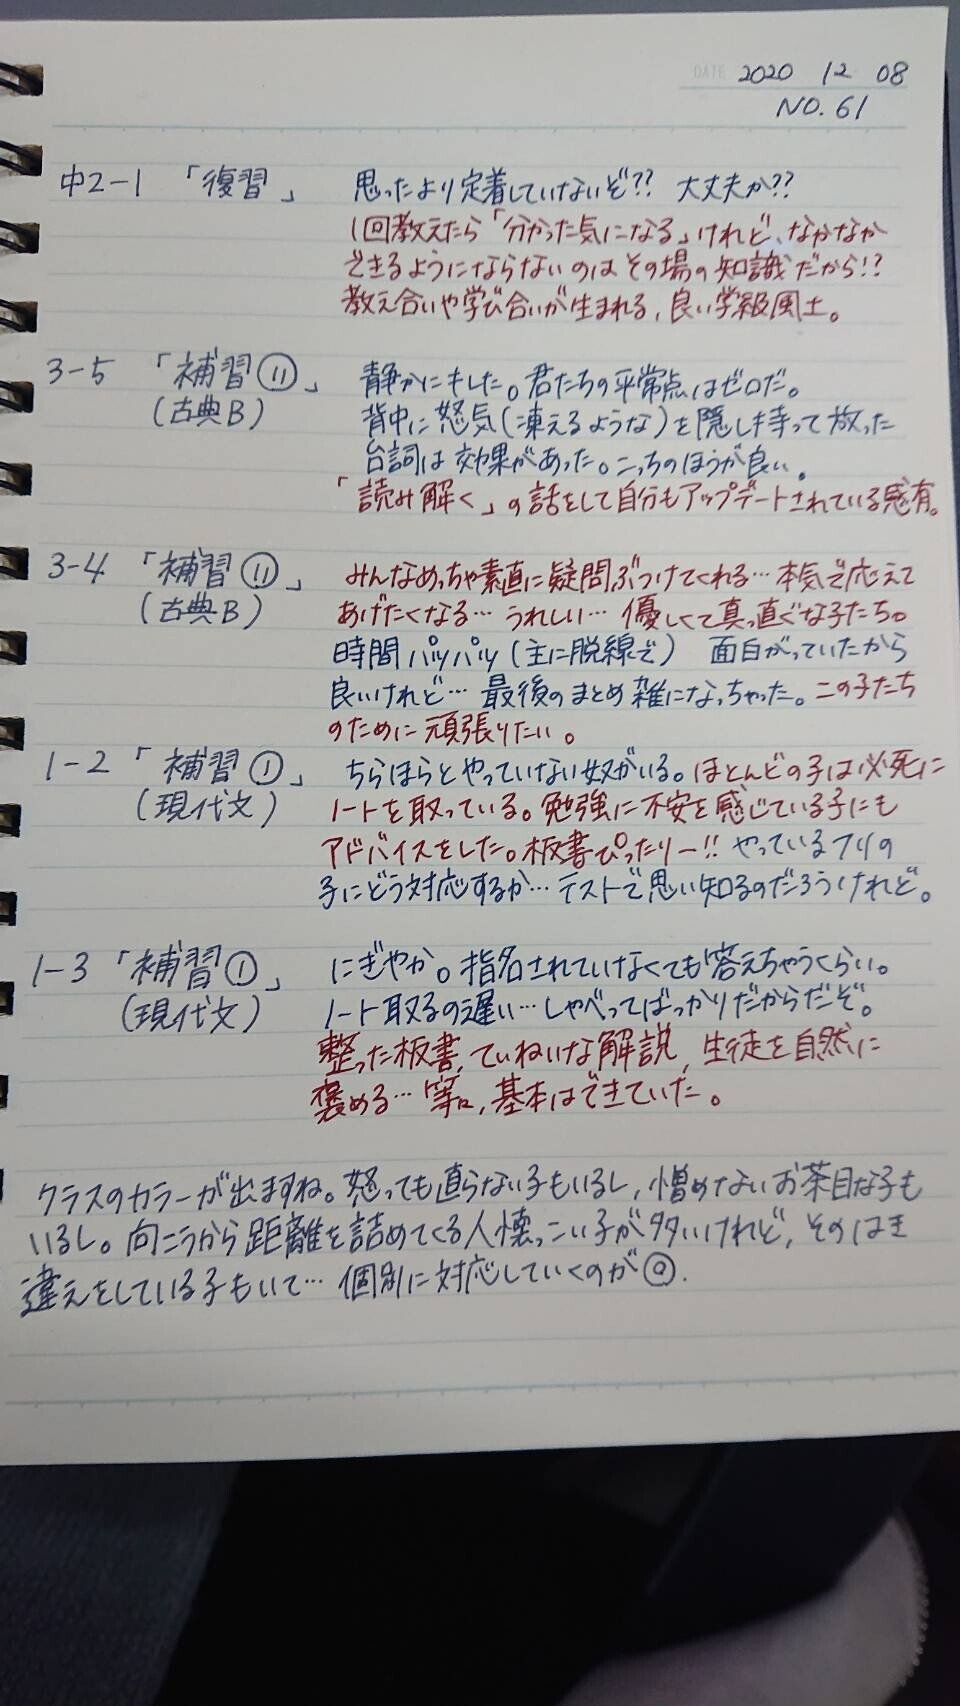 DATE 2020 12 08
NO.61
中2-1 「復習」 思ったより定着していないぞ?? 大丈夫か??
1回教えたら「分かった気になる」けれど、なかなか
できるようにならないのはその場の知識だから!?
教え合いや学び合いが生まれる、良い学級風土。
3-5 「補習⑪」 静かにキレた。君たちの平常点はゼロだ。
(古典B) 背中に怒気(凍えるような)を隠し持って放った
台詞は効果があった。こっちのほうが良い。
「読み解く」の話をして自分もアップデートされている感有。
3-4 「補習⑪」 みんなめっちゃ素直に疑問ぶつけてくれる…本気で応えて
(古典B) あげたくなる… うれしい… 優しくて真っ直ぐな子たち。
時間パツパツ(主に脱線で) 面白がっていたから
良いけれど… 最後のまとめ雑になっちゃった。この子たち
のために頑張りたい。
1-2 「補習①」 ちらほらとやっていない奴がいる。ほとんどの子は必死に
(現代文) ノートを取っている。勉強に不安を感じている子にも
アドバイスをした。板書ぴったりー!! やっているフリの
子にどう対応するか… テストで思い知るのだろうけれど。
1-3 「補習①」 にぎやか。指名されていなくても答えちゃうくらい。
(現代文) ノート取るの遅い…しゃべってばっかりだからだぞ。
整った板書、ていねいな解説、生徒を自然に
褒める… 等、基本はできていた。
クラスのカラーが出ますね。怒っても直らない子もいるし、憎めないお茶目な子も
いるし。向こうから距離を詰めてくる人懐っこい子が多いけれど、そのはき
違えをしている子もいて… 個別に対応していくのが◎.